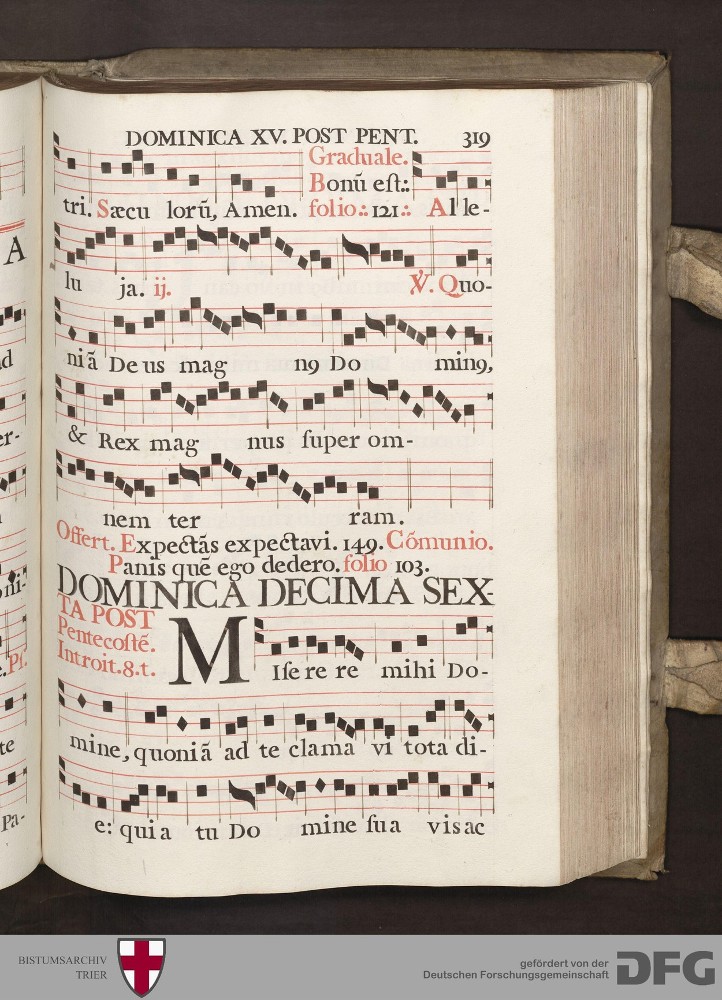 DOMINICA XV. POST PENT. 319
Graduale.
Bonū est.:
tri. Sæcu lorū, Amen. folio.: 121.: Al le-
lu ja. ij. ℣. Quo-
ni ā De us mag n9 Do min9,
& Rex mag nus super om-
nem ter ram.
Offert. Expectās expectavi. 149. Cōmunio.
Panis quē ego dedero. folio 103.
DOMINICA DECIMA SEX-
TA POST
Pentecostē.
Introit. 8. t.
Mise re re mihi Do-
mine, quoni ā ad te clama vi tota di-
e: qui a tu Do mine su a vis ac
A
er-
te
Pa-
BISTUMSARCHIV
TRIER
gefördert von der
Deutschen Forschungsgemeinschaft
DFG